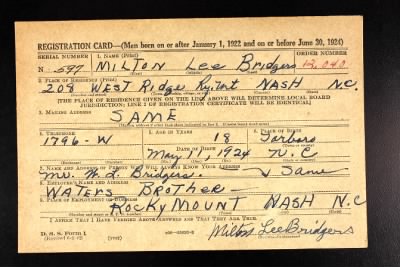 REGISTRATION CARD—(Men born on or after January 1, 1922 and on or before June 30, 1924)
SERIAL NUMBER 1. NAME (Print) ORDER NUMBER
N 597 MILTON Lee Bridgers 12,040
(First) (Middle) (Last)
2. PLACE OF RESIDENCE (Print)
209 WEST Ridge Ry. Mt NASH N.C.
[THE PLACE OF RESIDENCE GIVEN ON THE LINE ABOVE WILL DETERMINE LOCAL BOARD
JURISDICTION; LINE 2 OF REGISTRATION CERTIFICATE WILL BE IDENTICAL]
3. MAILING ADDRESS
SAME
4. TELEPHONE 5. AGE IN YEARS 6. PLACE OF BIRTH
1796-W 18 Tarboro
DATE OF BIRTH
May 1, 1924 N.C.
7. NAME AND ADDRESS OF PERSON WHO WILL ALWAYS KNOW YOUR ADDRESS
Mr. W. L. Bridgers Same
8. EMPLOYER'S NAME AND ADDRESS
WATERS BROTHER
9. PLACE OF EMPLOYMENT OR BUSINESS
ROCKY MOUNT NASH N.C
I AFFIRM THAT I HAVE VERIFIED ABOVE ANSWERS AND THAT THEY ARE TRUE.
D. S. S. Form 1
Milton Lee Bridgers